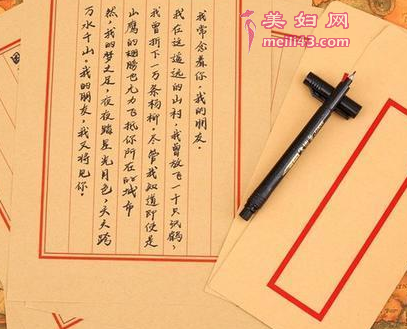 我常念着你,我的朋友。
我在这遥远的山村,我曾放飞一千只纸鹤,
我曾折下一万条杨柳。尽管我知道即使是
山鹰的翅膀也无力飞抵你所在的城市
然,我的梦之足,夜夜踏星光月色,天天跨
万水千山。我的朋友,我又将见你!
美妇网
meili43.com